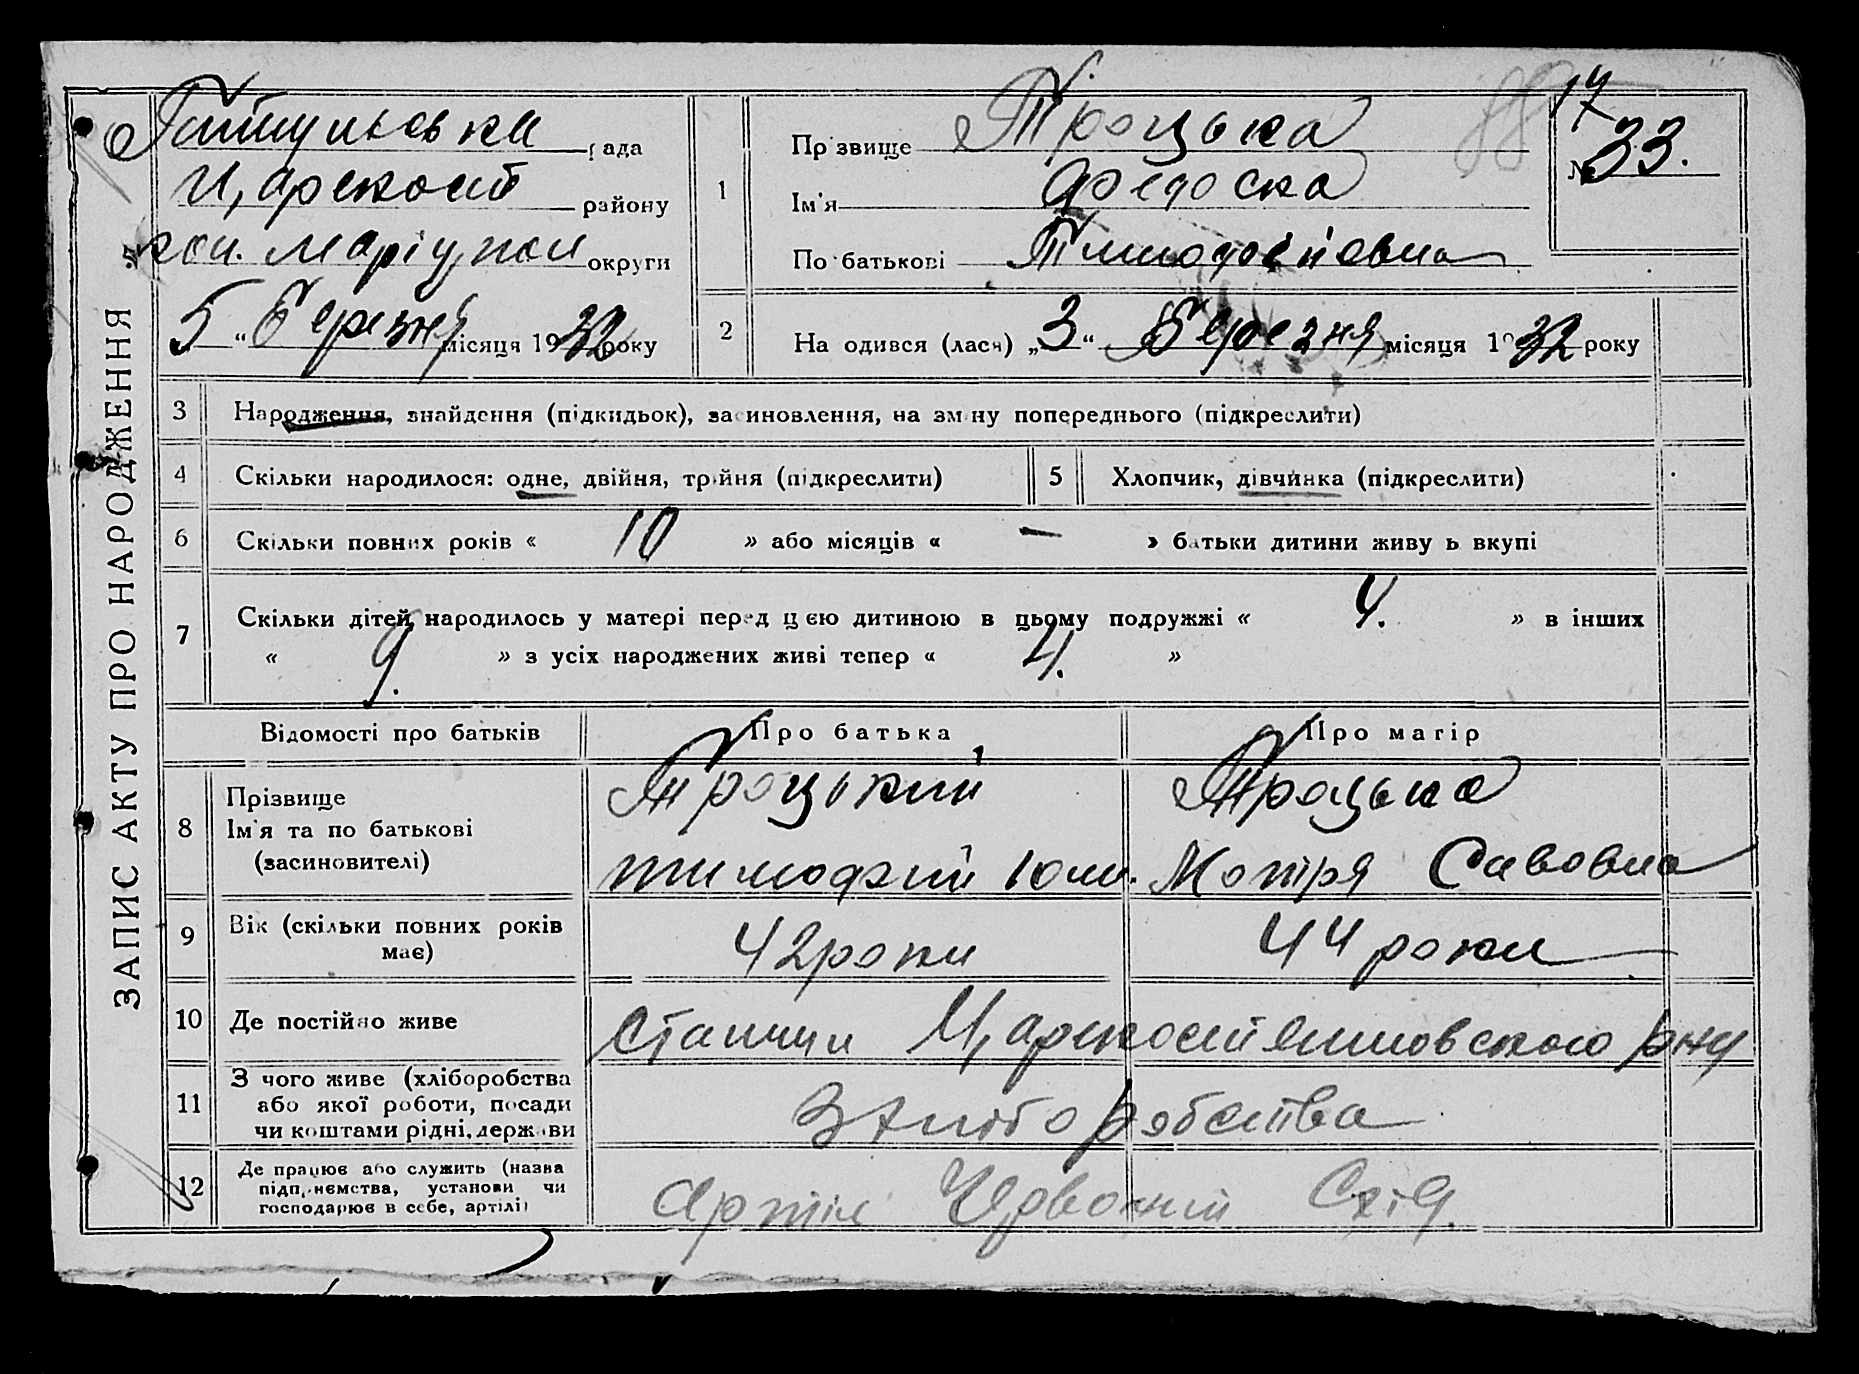 ЗАПИС АКТУ ПРО НАРОДЖЕННЯ
рада
Царекост району
кол. Маріупол округи
5 " Березня місяця 1932 року
17
№ 33.
1 Прізвище Троцька
Ім'я Федоска
По батькові Тимофіївна
2 На одився (лася) „3" Березня місяця 1932 року
3 Народження, знайдення (підкидьок), засиновлення, на зміну попереднього (підкреслити)
4 Скільки народилося: одне, двійня, трійня (підкреслити)
5 Хлопчик, дівчинка (підкреслити)
6 Скільки повних років « 10 » або місяців « — » батьки дитини живуть вкупі
7 Скільки дітей народилось у матері перед цією дитиною в цьому подружжі « 4. » в інших
« » з усіх народжених живі тепер « 4. »
Відомості про батьків Про батька Про матір
8 Прізвище
Ім'я та по батькові
(засиновителі)
Троцький
тимофій Юли.
Троцька
Мотря Савовна
9 Вік (скільки повних років
має)
42 роки 44 роки
10 Де постійно живе
Станция Царекостянтиновского рну
11 З чого живе (хліборобства
або якої роботи, посади
чи коштами рідні, держави
З хліборобства
12 Де працює або служить (назва
підприємства, установи чи
господарює в себе, артілі)
Артіл Червоний Схід.